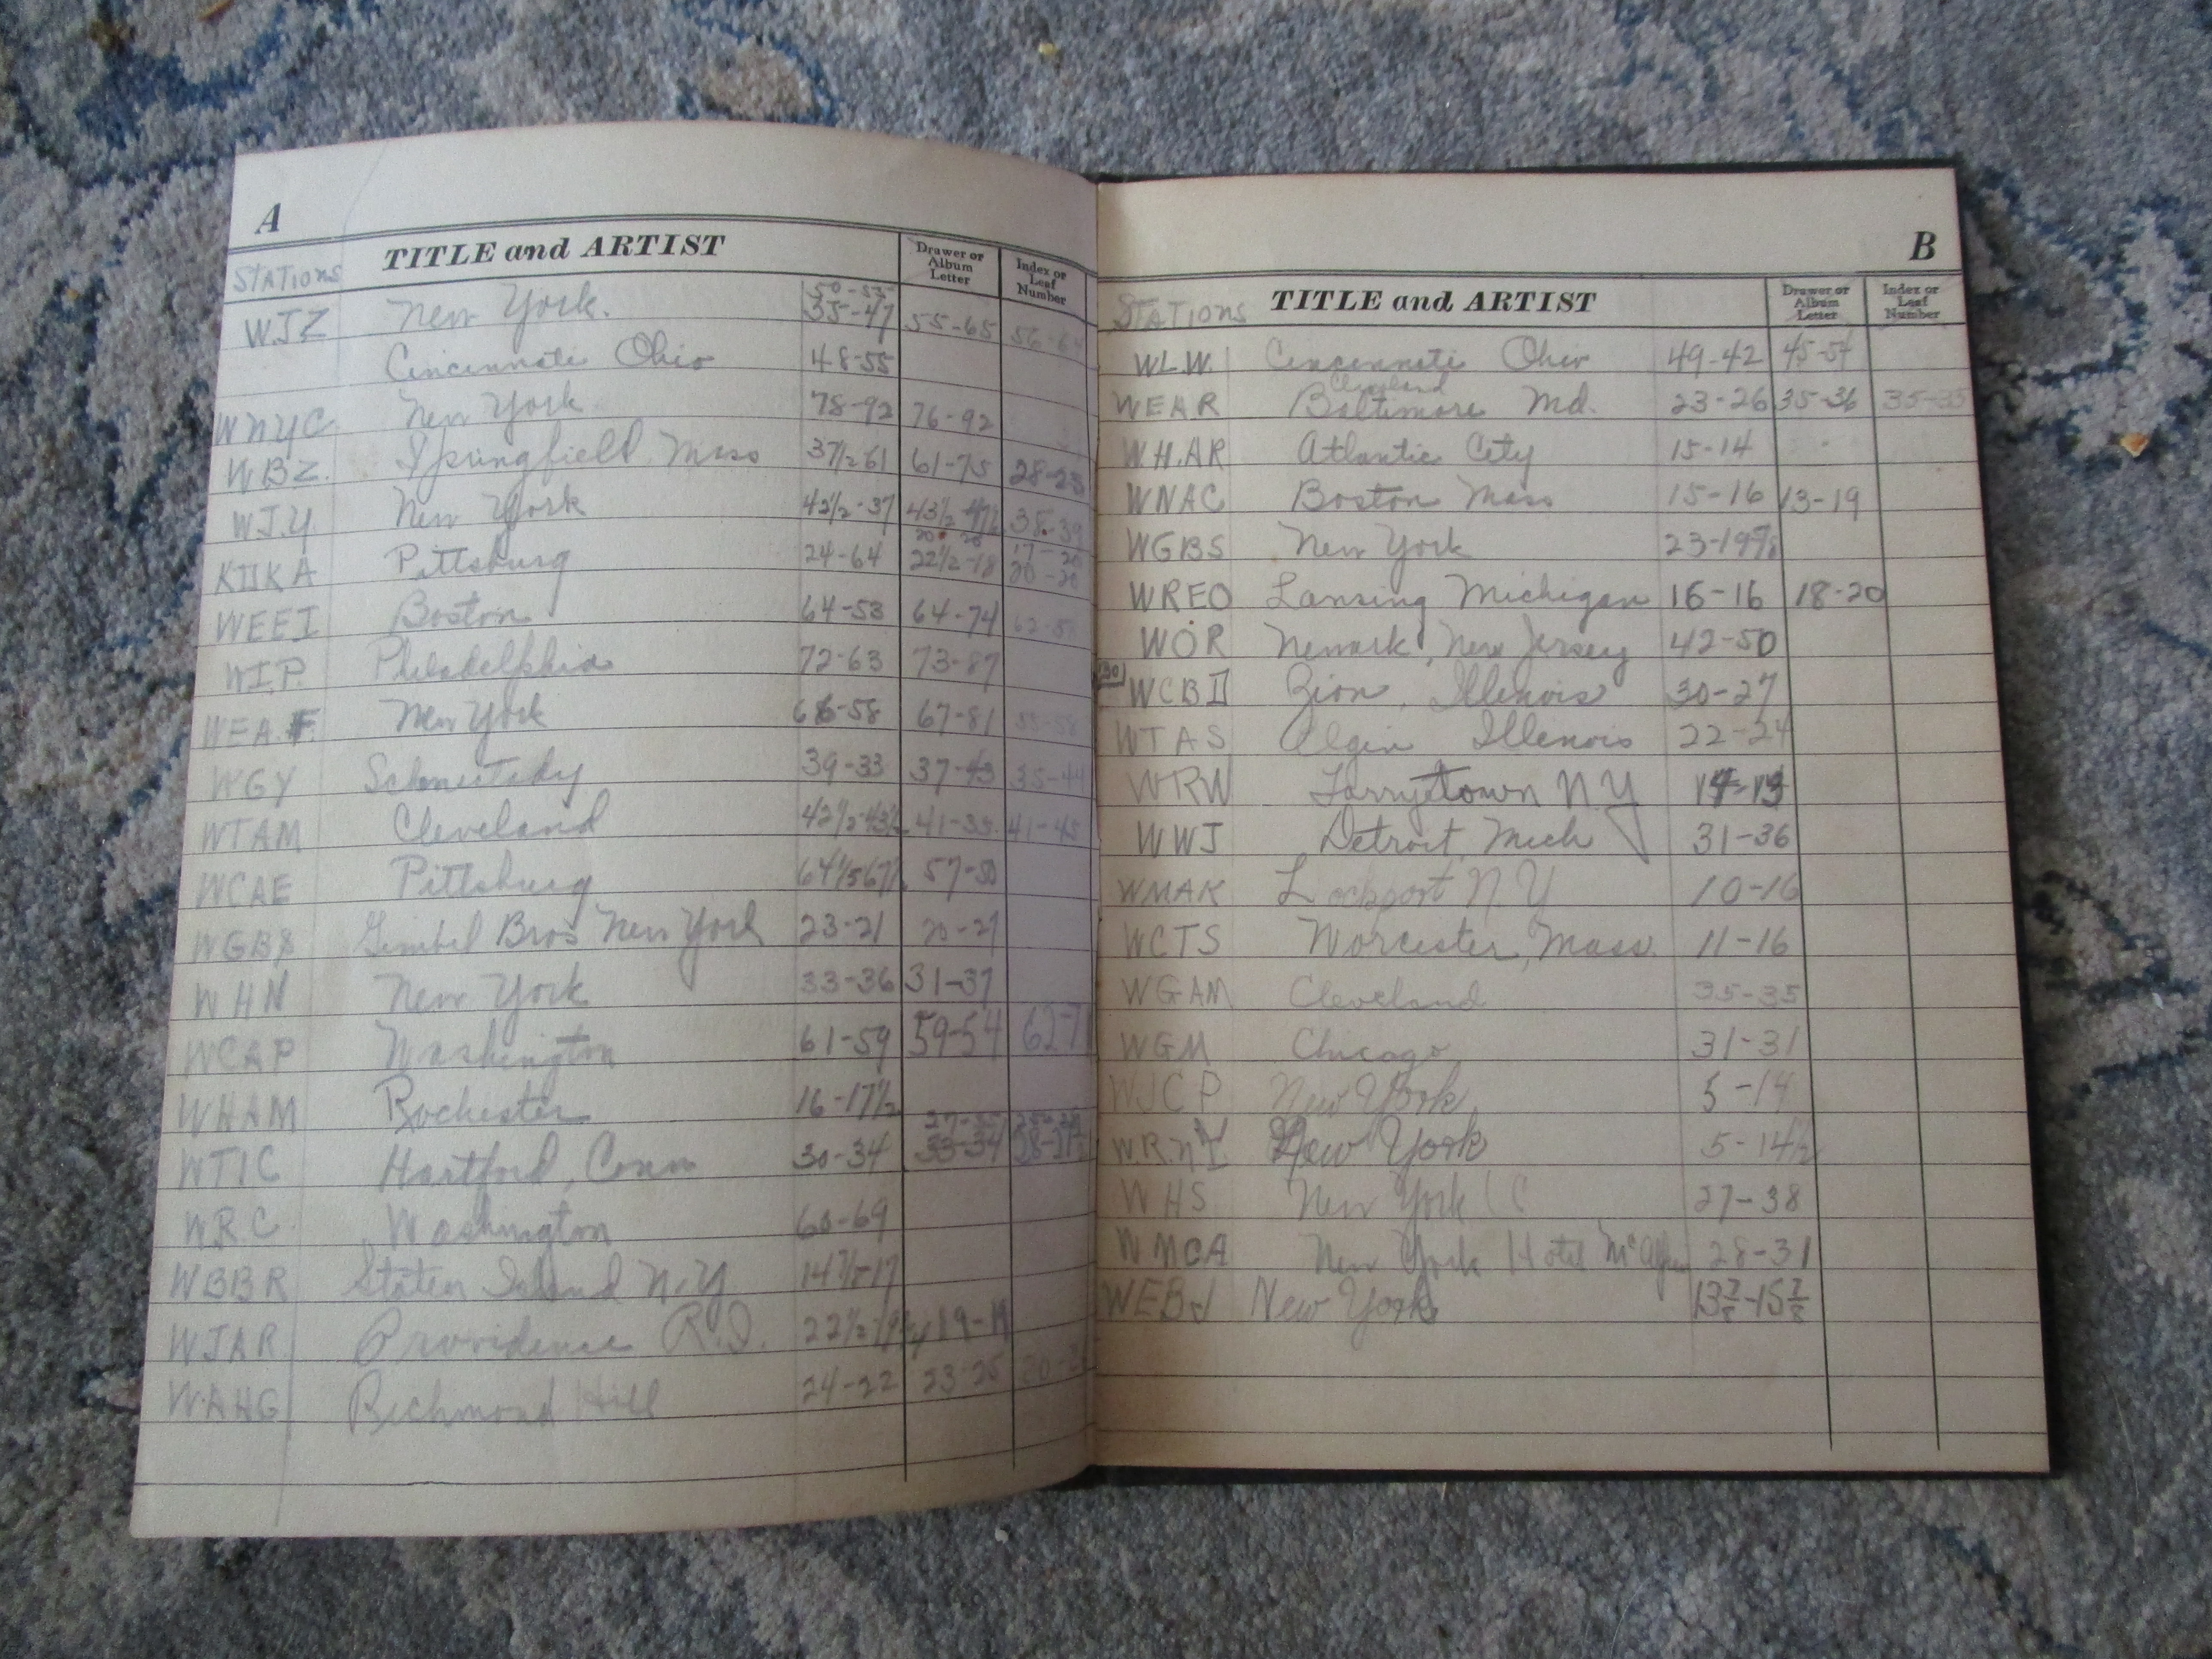 A
TITLE and ARTIST
Drawer or
Album
Letter
Index or
Leaf
Number
STATIONS
50-55
WJZ New York. 35-47 55-65
Cincinnati Ohio 48-55
WNYC New York 78-92 76-92
WBZ. Springfield Mass 37½-61 61-75 28-23
WJY New York 42½-37 38-39
KDKA Pittsburg 24-64 22½-18
WEEI Boston 64-53 64-74
WIP. Philadelphia 72-63 73-87
WEAF New York 66-58 67-81 55-58
WGY 39-33 37-43 35-44
WTAM Cleveland 41-35. 41-45
WCAE Pittsburg 57-50
WGBS Gimbel Bros New York 23-21 20-27
WHN New York 33-36 31-37
WCAP Washington 61-59 59-54
WHAM Rochester 16-17½
WTIC Hartford, Conn 30-34 33-34
WRC Washington 60-69
WBBR Staten Island N.Y.
WJAR Providence R.I. 19-19
WAHG Richmond Hill 24-22 23-25
B
TITLE and ARTIST
Drawer or
Album
Letter
Index or
Leaf
Number
STATIONS
WLW. Cincinnati Ohio 49-42 45-54
Cleveland
WEAR Baltimore Md. 23-26 35-36 35-35
WHAR Atlantic City 15-14
WNAC Boston Mass 15-16 13-19
WGBS New York
WREO Lansing Michigan 16-16 18-20
WOR Newark, New Jersey 42-50
WCBD Zion, Illinois 30-27
WTAS Elgin Illinois 22-24
WRW Tarrytown NY 14-13
WWJ Detroit, Mich 31-36
WMAK Lockport N.Y 10-16
WCTS Worcester, Mass. 11-16
WGAM Cleveland 35-35
WGM Chicago 31-31
WJCP New York 5-14
W.R.NY New York 5-14½
WHS New York 27-38
WMCA New York Hotel McAlpin 28-31
WEBJ New York 13⅞-15⅞